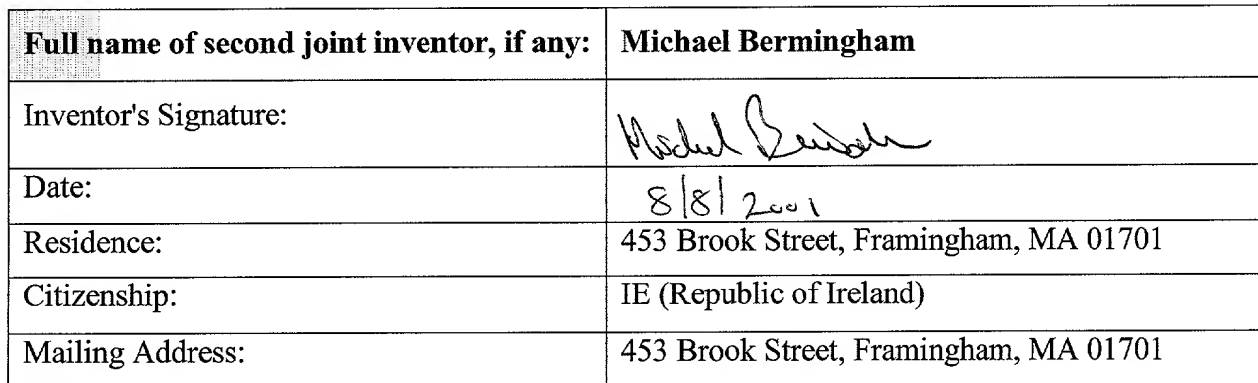 Full name of second joint inventor, if any: Michael Bermingham
Inventor's Signature:
Date: 8/8/2001
Residence: 453 Brook Street, Framingham, MA 01701
Citizenship: IE (Republic of Ireland)
Mailing Address: 453 Brook Street, Framingham, MA 01701